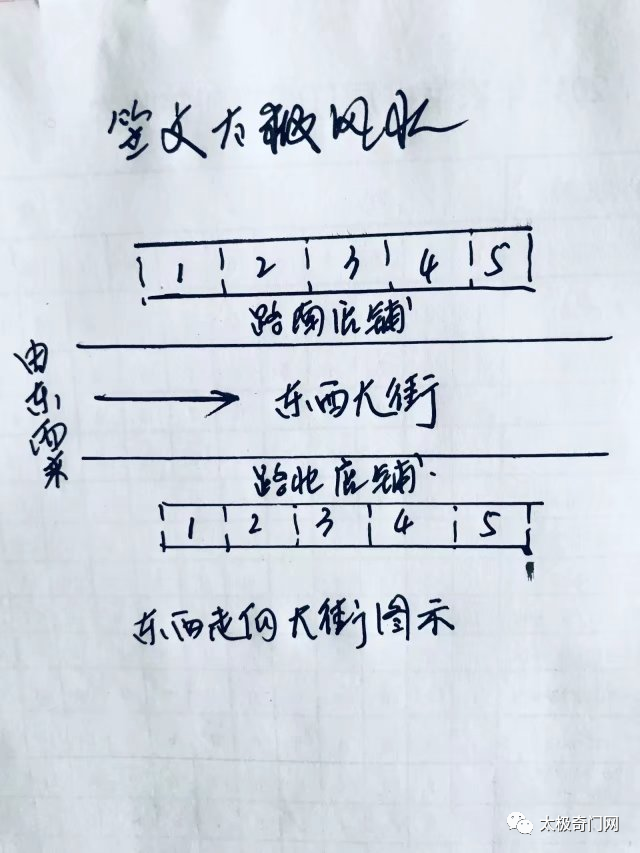 文太极风水
1 2 3 4 5
路南店铺
由东而来
东西大街
路北店铺
1 2 3 4 5
东西走向大街图示
太极奇门网